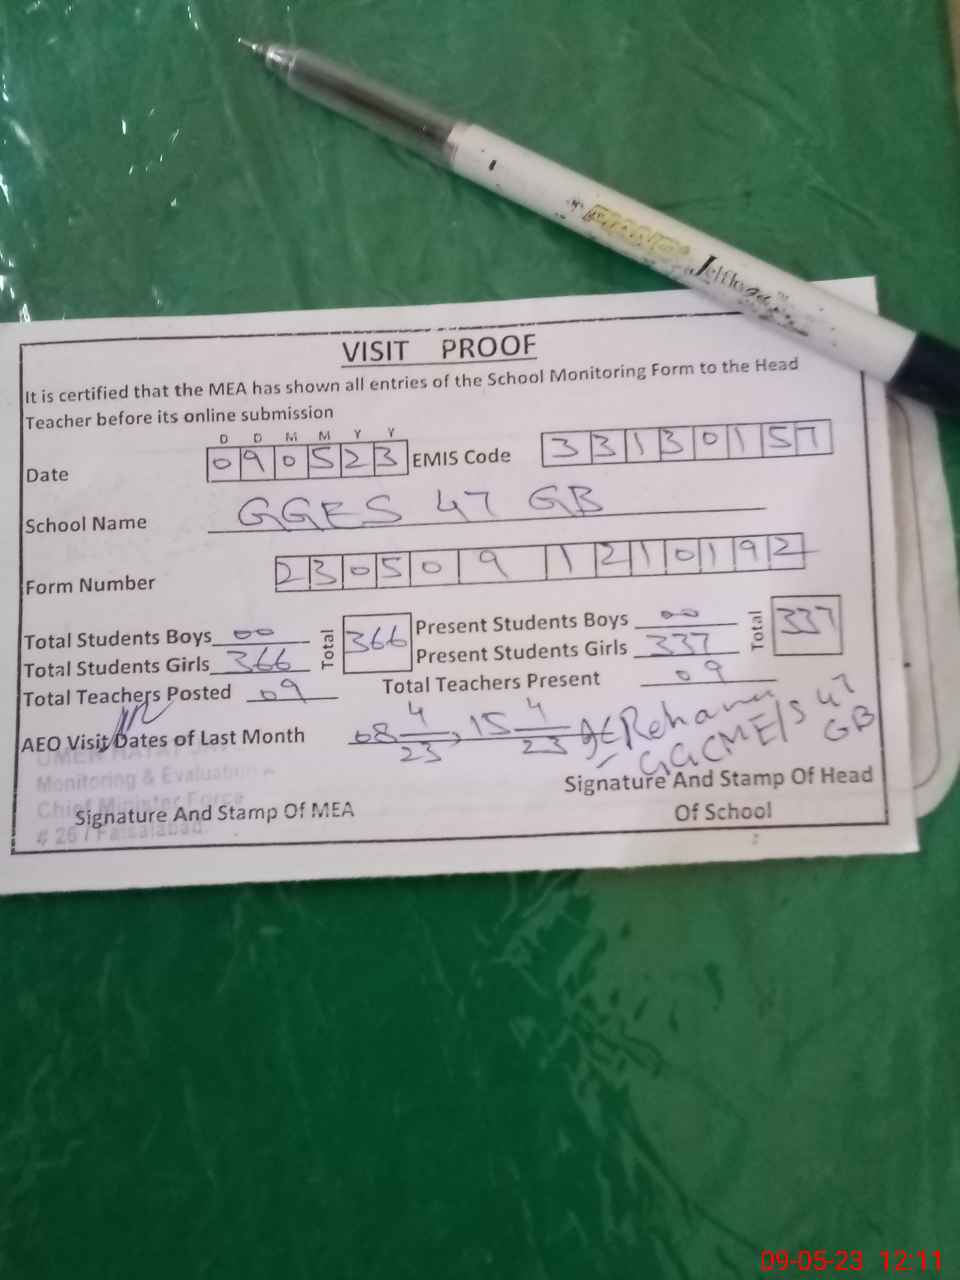 PIANO
VISIT PROOF
It is certified that the MEA has shown all entries of the School Monitoring Form to the Head
Teacher before its online submission
D D M M Y Y
Date 0 9 0 5 2 3 EMIS Code 3 3 1 3 0 1 5 7
School Name GGES 47 GB
Form Number 2 3 0 5 0 9 1 2 1 0 1 9 2
Total Students Boys 00 Total 366 Present Students Boys 00 Total 337
Total Students Girls 366 Present Students Girls 337
Total Teachers Posted 09 Total Teachers Present 09
AEO Visit Dates of Last Month 08 4/23, 15 4/23 Rehana
GGCME/S 47
GB
Monitoring & Evaluation
Chief Minister Force
Faisalabad
Signature And Stamp Of MEA
Signature And Stamp Of Head
Of School
09-05-23 12:11